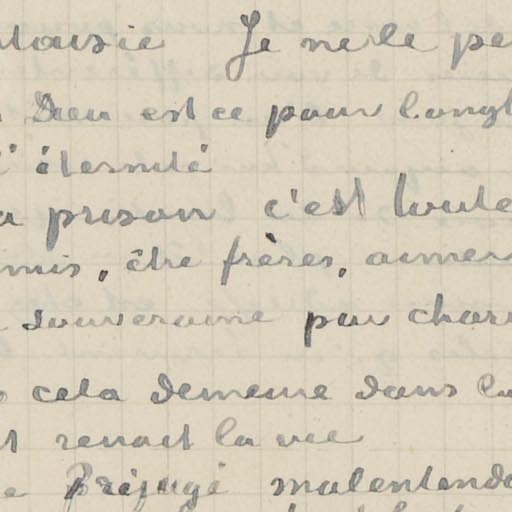 Je ne le pe
Dieu est ce pour longt
l'éternité
prison c'est toute
amis, être frères, aimer
souveraine par char
cela demeure dans la
renait la vie
Préjugé malentendu